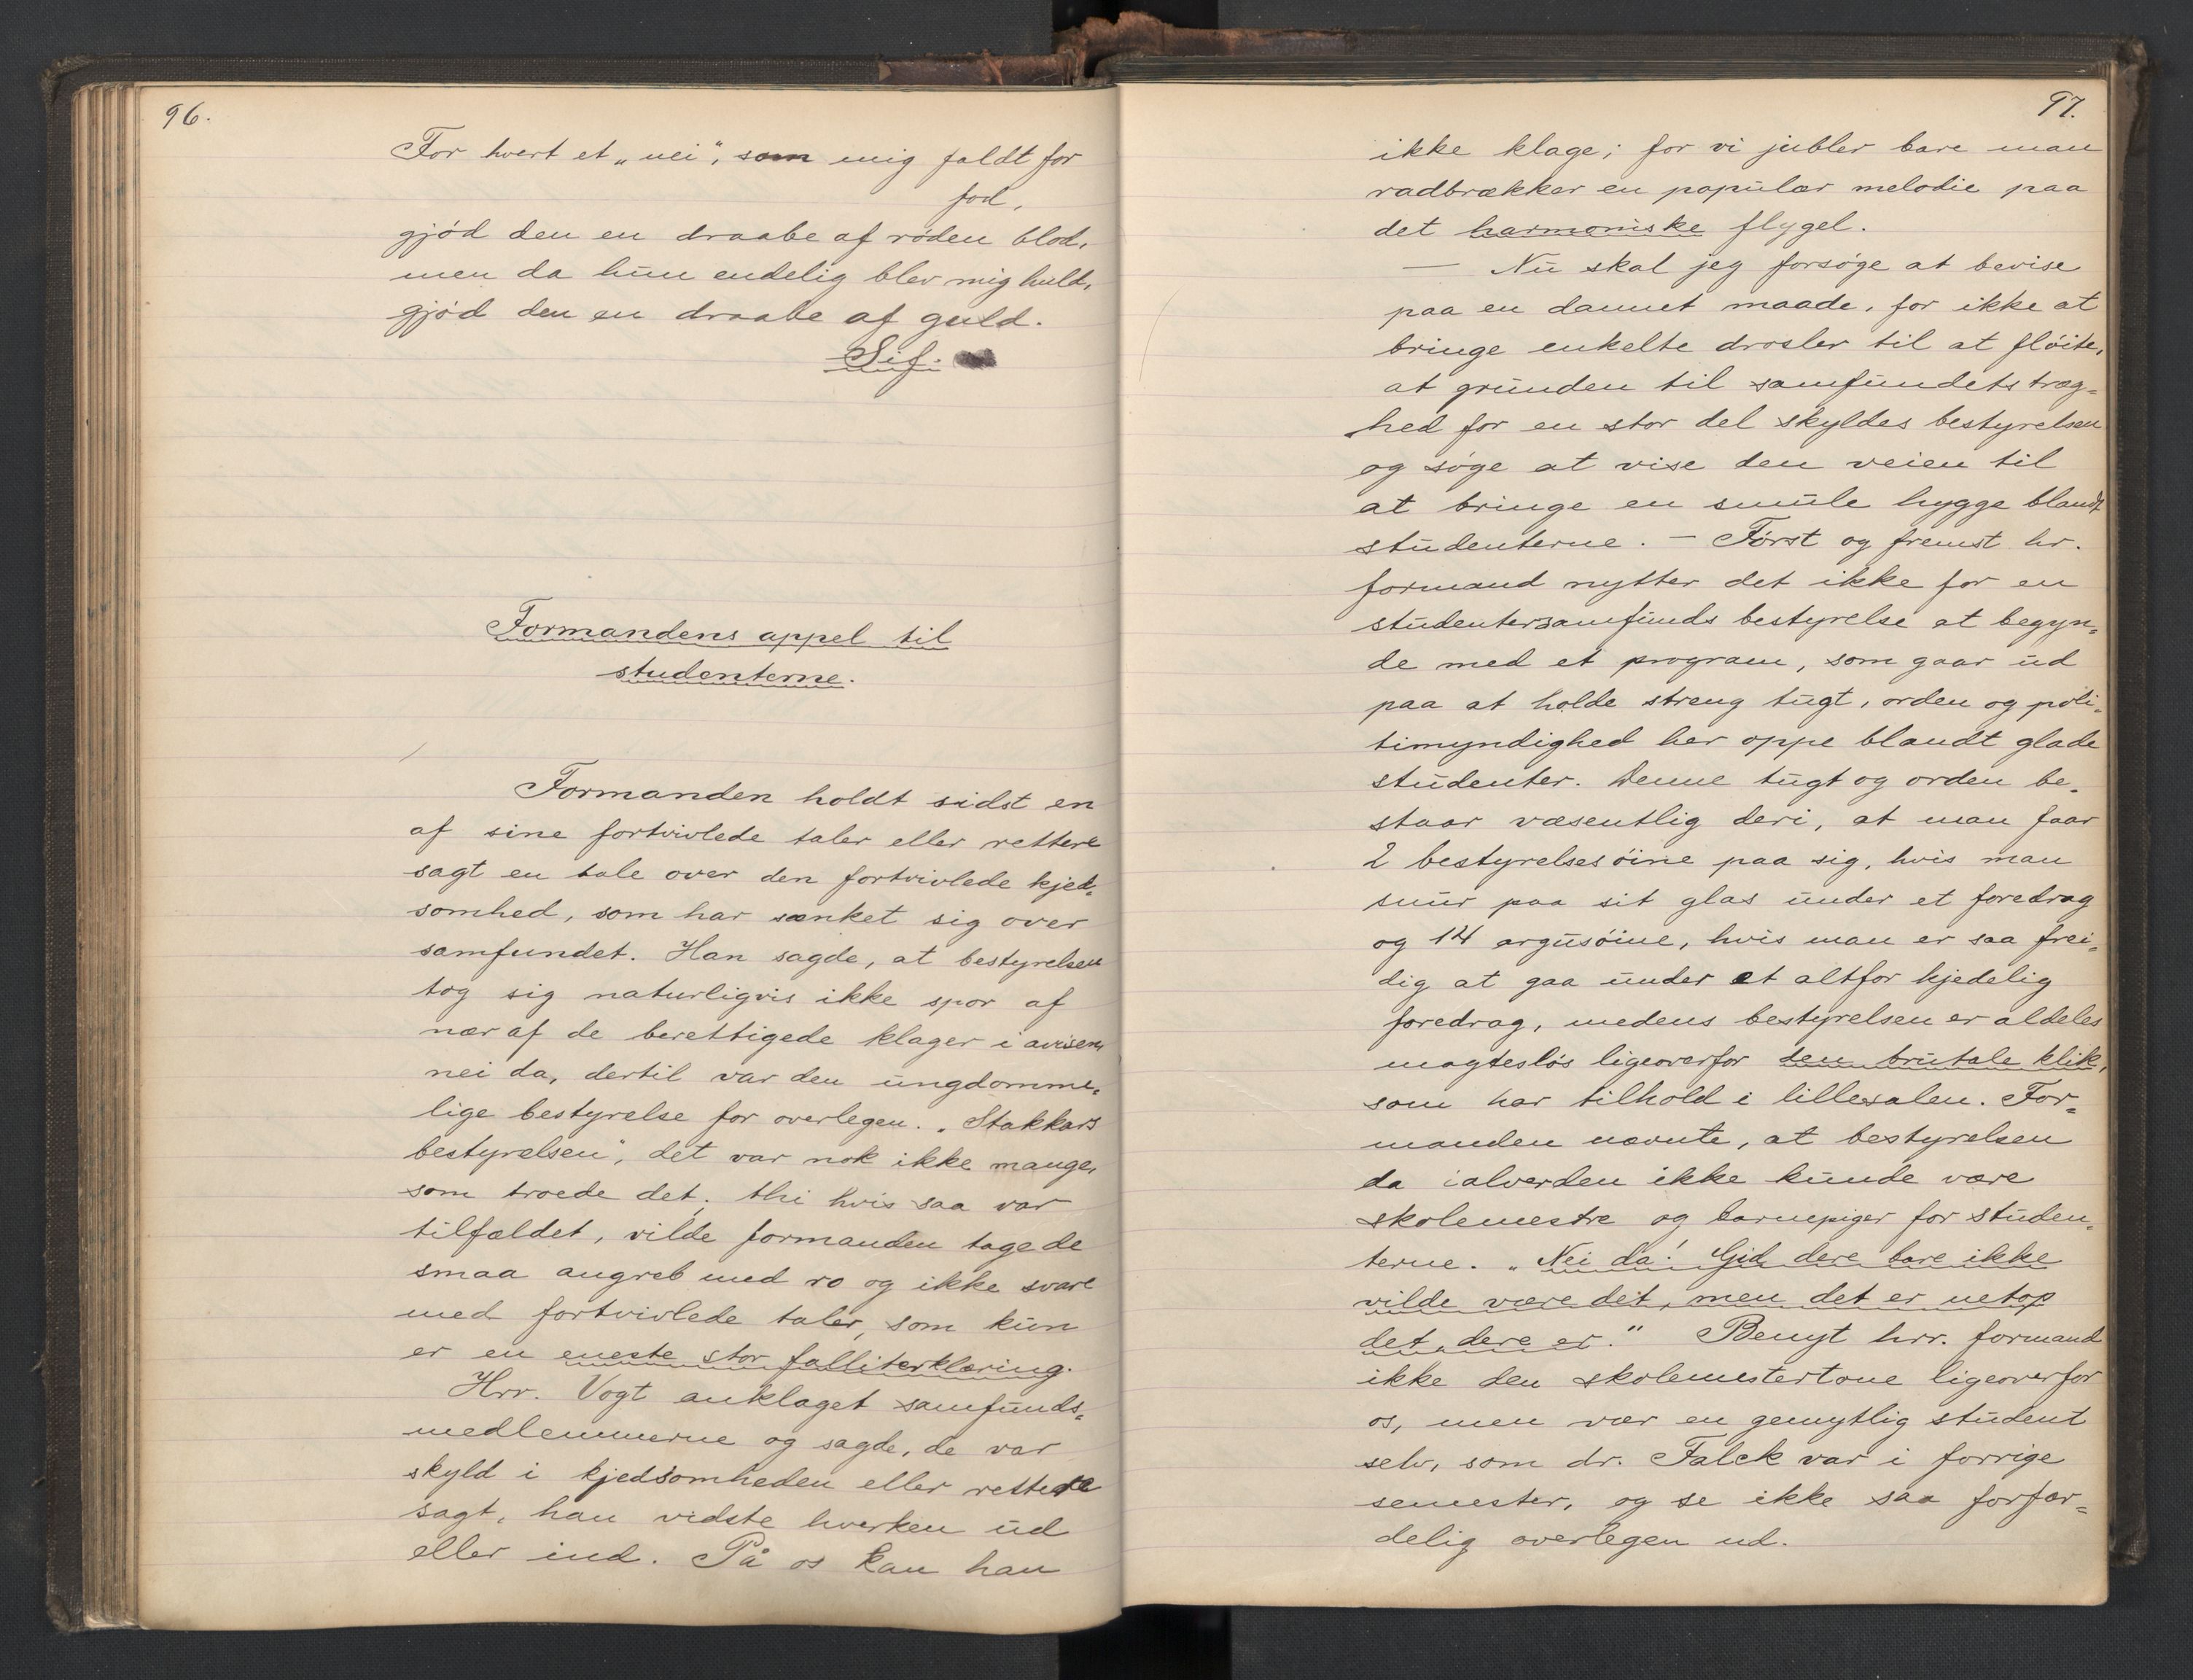 96.
For hvert et „nei", som mig faldt for
fod,
gjød den en draabe af røden blod,
men da hun endelig blev mig huld,
gjød den en draabe af guld.
Sif.
Formandens appel til
studenterne.
Formanden holdt sidst en
af sine fortvivlede taler eller rettere
sagt en tale over den fortvivlede kjed=
somhed, som har sænket sig over
samfundet. Han sagde, at bestyrelsen
tog sig naturligvis ikke spor af
nær af de berettigede klager i avisen,
nei da, dertil var den ungdomme=
lige bestyrelse for overlegen. „Stakkars
bestyrelsen", det var nok ikke mange,
som troede det; thi hvis saa var
tilfældet, vilde formanden tage de
smaa angreb med ro og ikke svare
med fortvivlede taler, som kun
er en eneste stor falliterklæring.
Hrr. Vogt anklaget samfunds=
medlemmerne og sagde, de var
skyld i kjedsomheden eller rettere
sagt, han vidste hverken ud
eller ind. På os kan han
97.
ikke klage; for vi jubler bare man
radbrækker en populær melodie paa
det harmoniske flygel.
— Nu skal jeg forsøge at bevise
paa en dannet maade, for ikke at
bringe enkelte drosler til at fløite,
at grunden til samfundets træg=
hed for en stor del skyldes bestyrelsen
og søge at vise den veien til
at bringe en smule hygge blandt
studenterne. – Først og fremst hr.
formand nytter det ikke for en
studentersamfunds bestyrelse at begyn=
de med et program, som gaar ud
paa at holde streng tugt, orden og poli=
timyndighed her oppe blandt glade
studenter. Denne tugt og orden be=
staar væsentlig deri, at man faar
2 bestyrelsesøine paa sig, hvis man
snur paa sit glas under et foredrag
og 14 argusøine, hvis man er saa frei=
dig at gaa under et altfor kjedelig
foredrag, medens bestyrelsen er aldeles
magtesløs ligeoverfor den brutale klik,
som har tilhold i lillesalen. For=
manden nævnte, at bestyrelsen
da ialverden ikke kunde være
skolemestre og barnepiger for studen=
terne. „Nei da! Gid dere bare ikke
vilde være det, men det er netop
det, dere er." Benyt hrr. formand
ikke den skolemestertone ligeoverfor
os, men vær en gemytlig student
selv, som dr. Falck var i forrige
semester, og se ikke saa forfær=
delig overlegen ud.